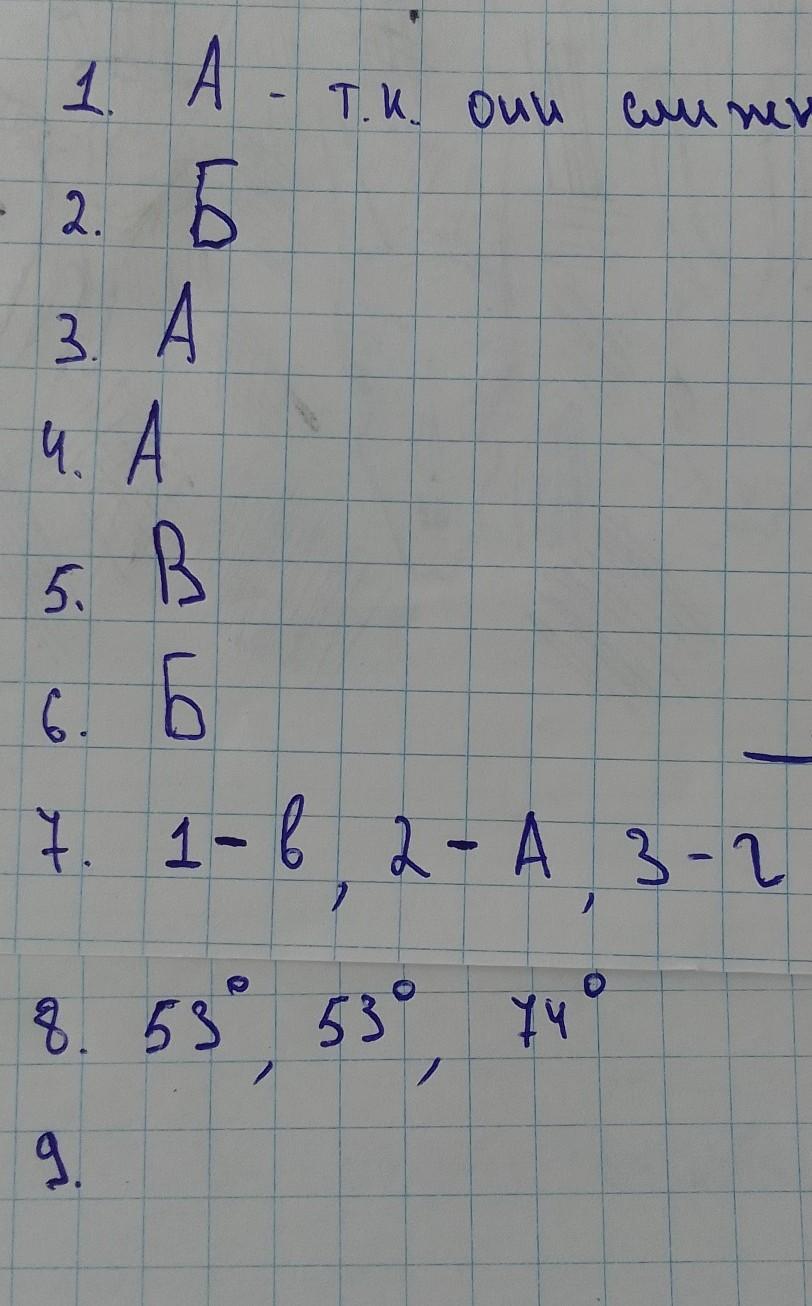 1. А - т.к. они смежн
2. Б
3. А
4. А
5. В
6. Б
7. 1-в, 2-А, 3-г
8. 53°, 53°, 74°
9.